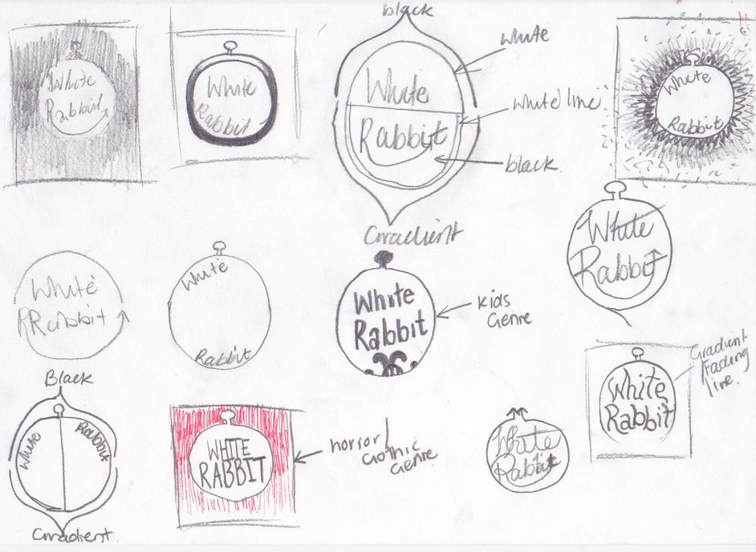 White
Rabbit
White
Rabbit
black
white
White
Rabbit
white line
black
Gradient
White
Rabbit
White
Rabbit
White
Rabbit
White
Rabbit
White
Rabbit
Kids
Genre
White
Rabbit
Black
White
Rabbit
Gradient
WHITE
RABBIT
horror/
Gothic
Genre
White
Rabbit
White
Rabbit
Gradient
Fading
line.